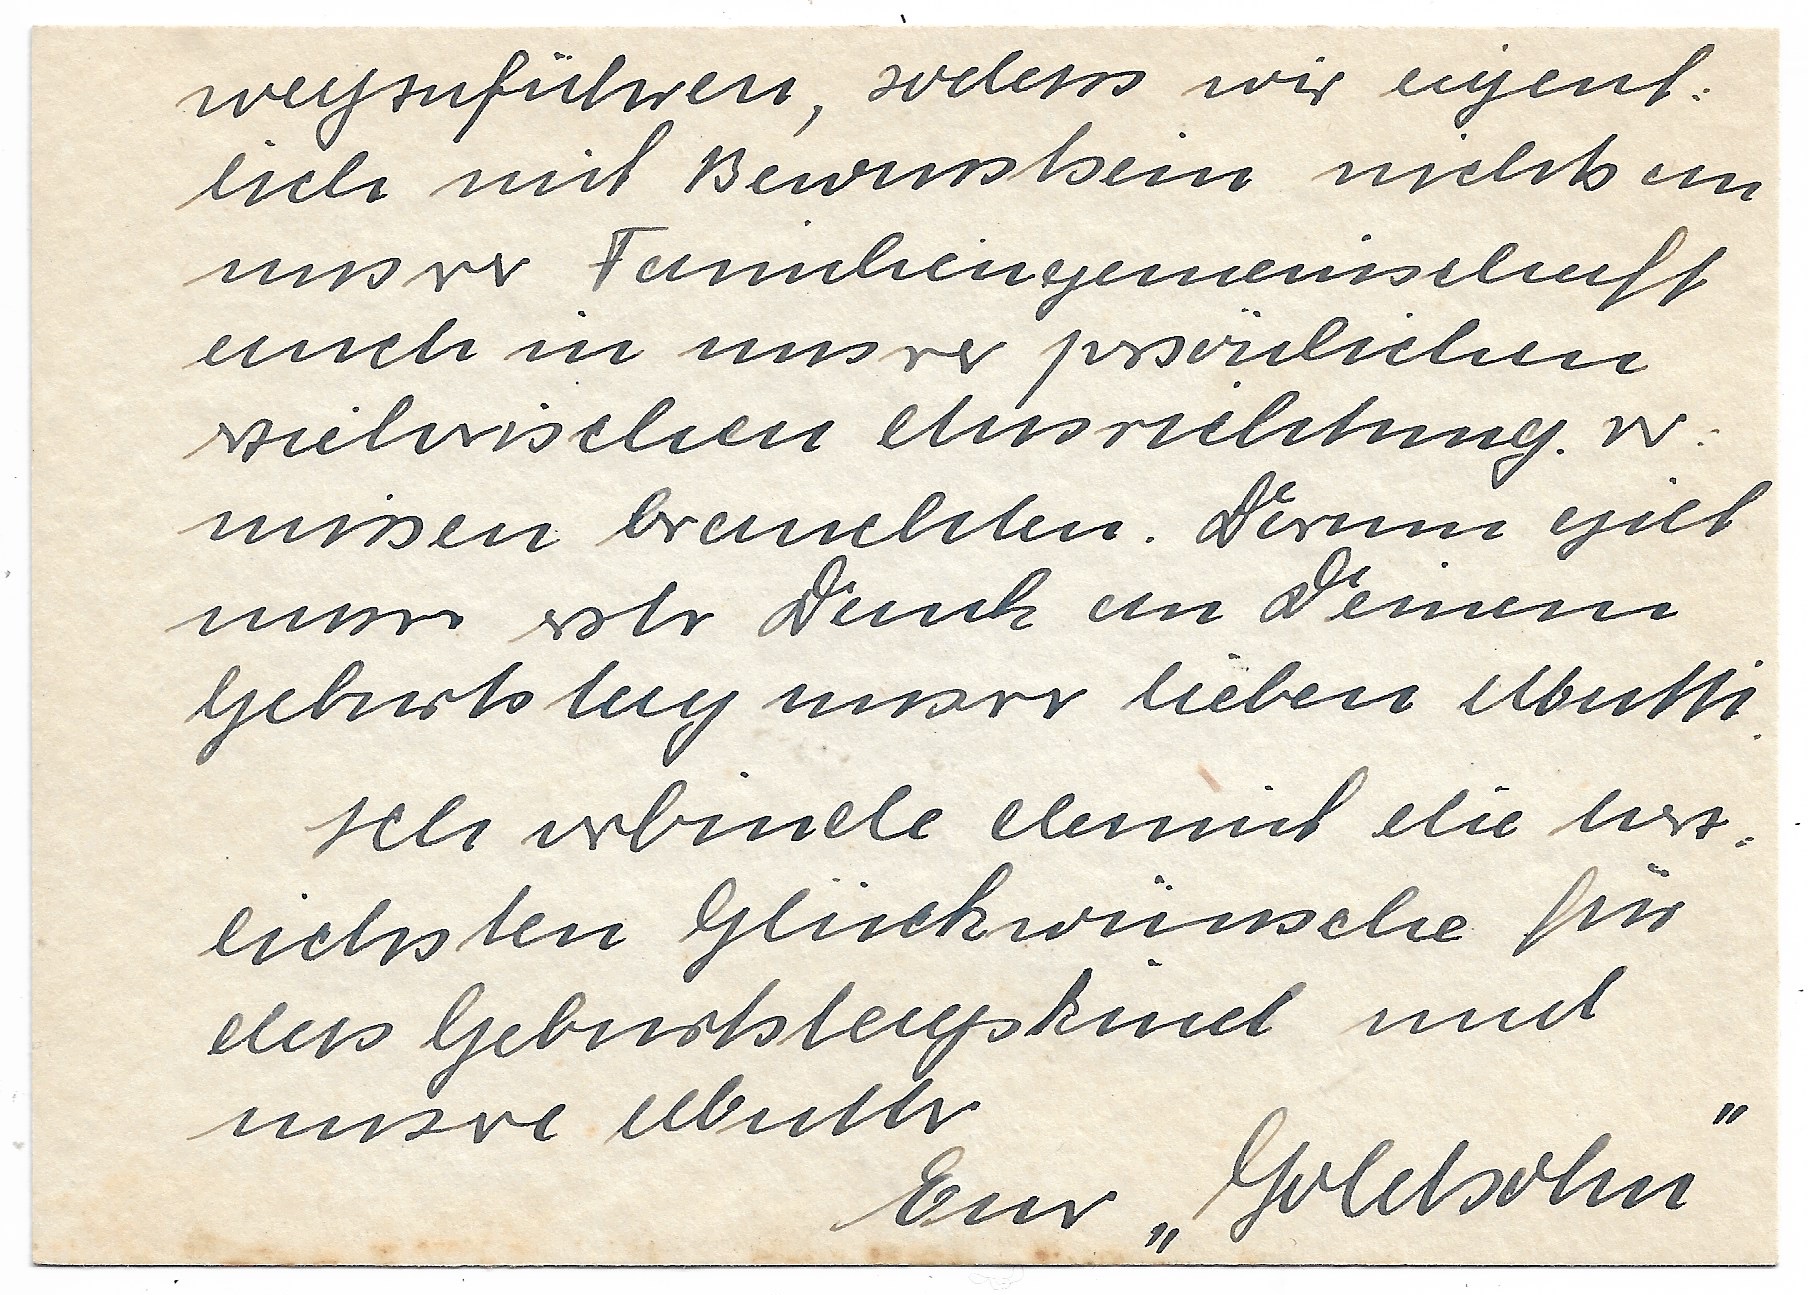 wegzuführen, sodass wir eigent:
lich mit Bewusstsein nichts an
unsrer Familiengemeinschaft
auch in unsrer persönlichen
erzieherischen Ausrichtung ver:
missen brauchten. Darum gilt
unser erster Dank an Deinem
Geburtstag unsrer lieben Mutti.
Ich verbinde damit die herz:
lichsten Glückwünsche für
das Geburtstagskind und
unsre Mutter
Euer „Goldsohn"